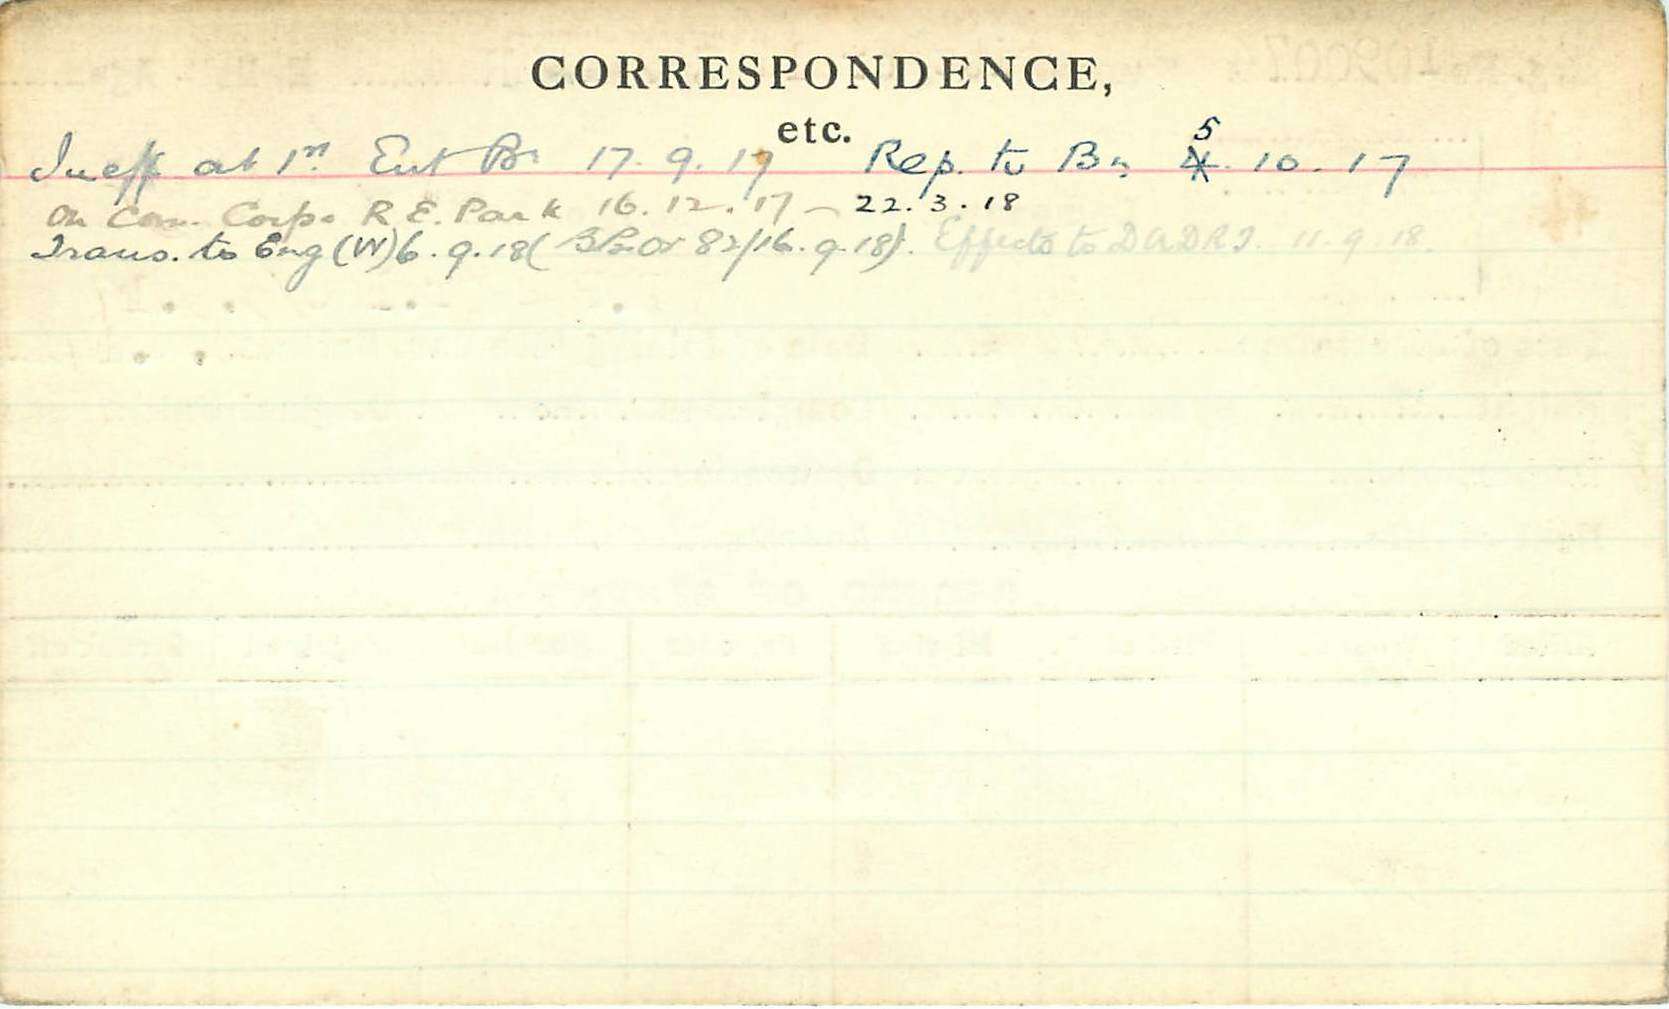 CORRESPONDENCE,
etc.
Ineff at 1st Ent Bn 17.9.17 Rep. to Bn 5.10.17
On Com. Corps R.E. Park 16.12.17 – 22.3.18
Trans. to Eng (W) 6.9.18 ( 82/16.9.18). Effects to DADRT. 11.9.18.